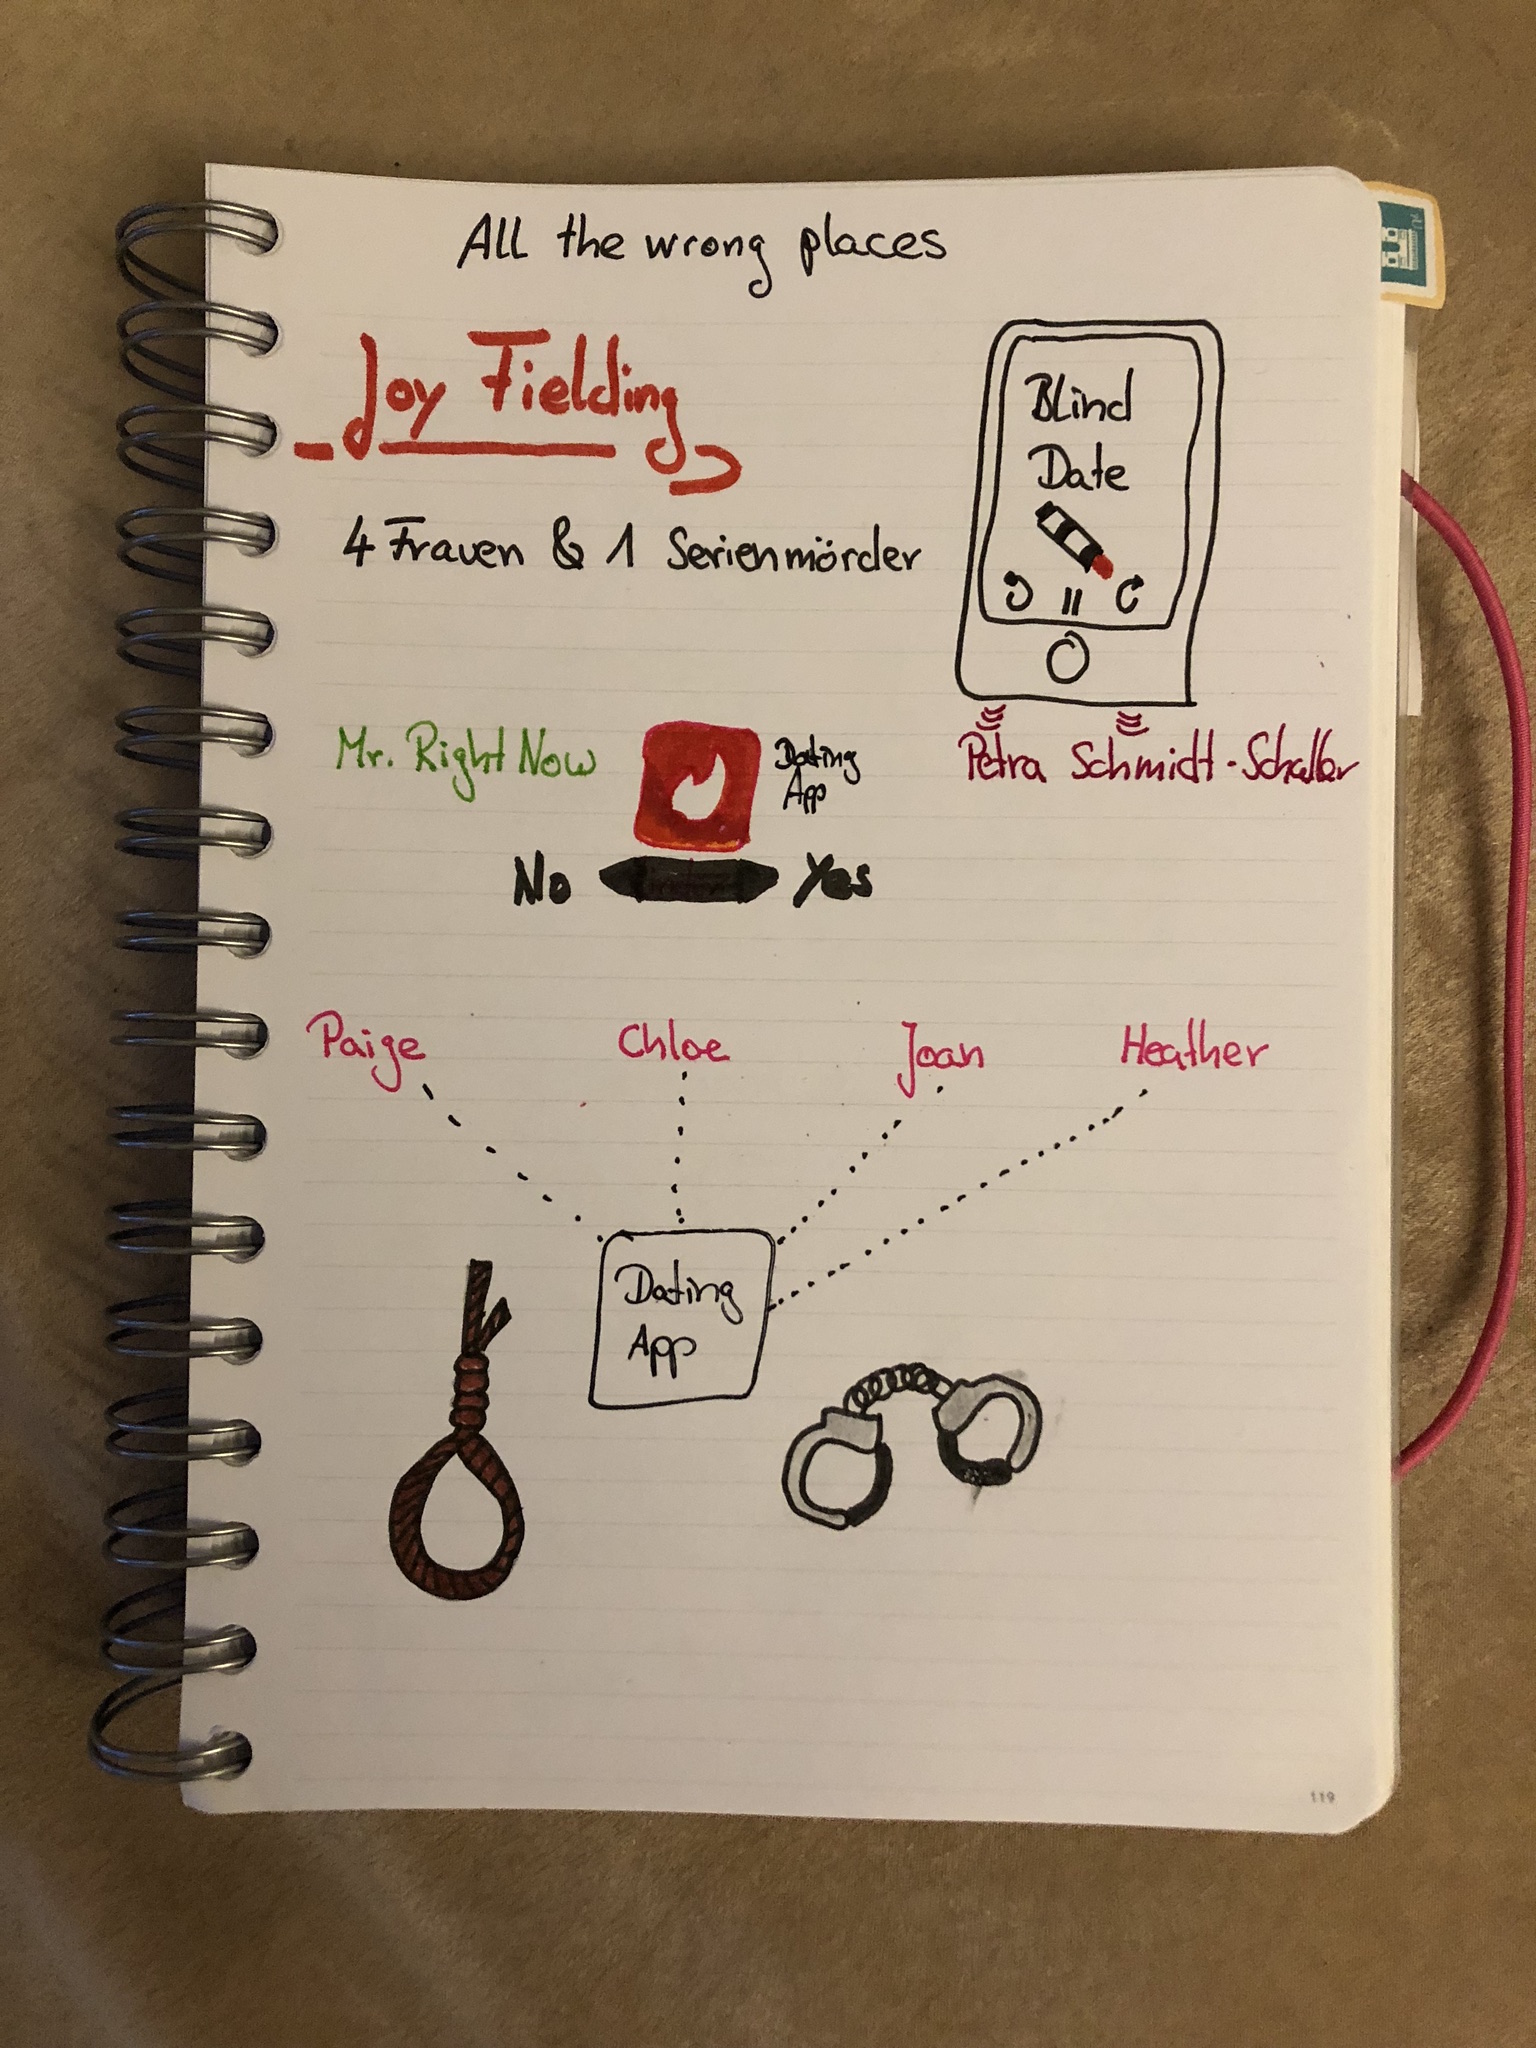 All the wrong places
Joy Fielding
4 Frauen & 1 Serienmörder
Blind
Date
Petra Schmidt-Schaller
Mr. Right Now
Dating
App
No
Yes
Paige
Chloe
Joan
Heather
Dating
App
119